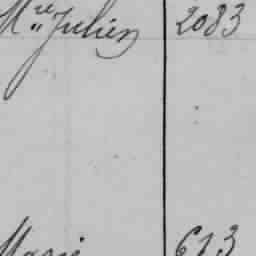 Mre Julien 2083
Marie 613